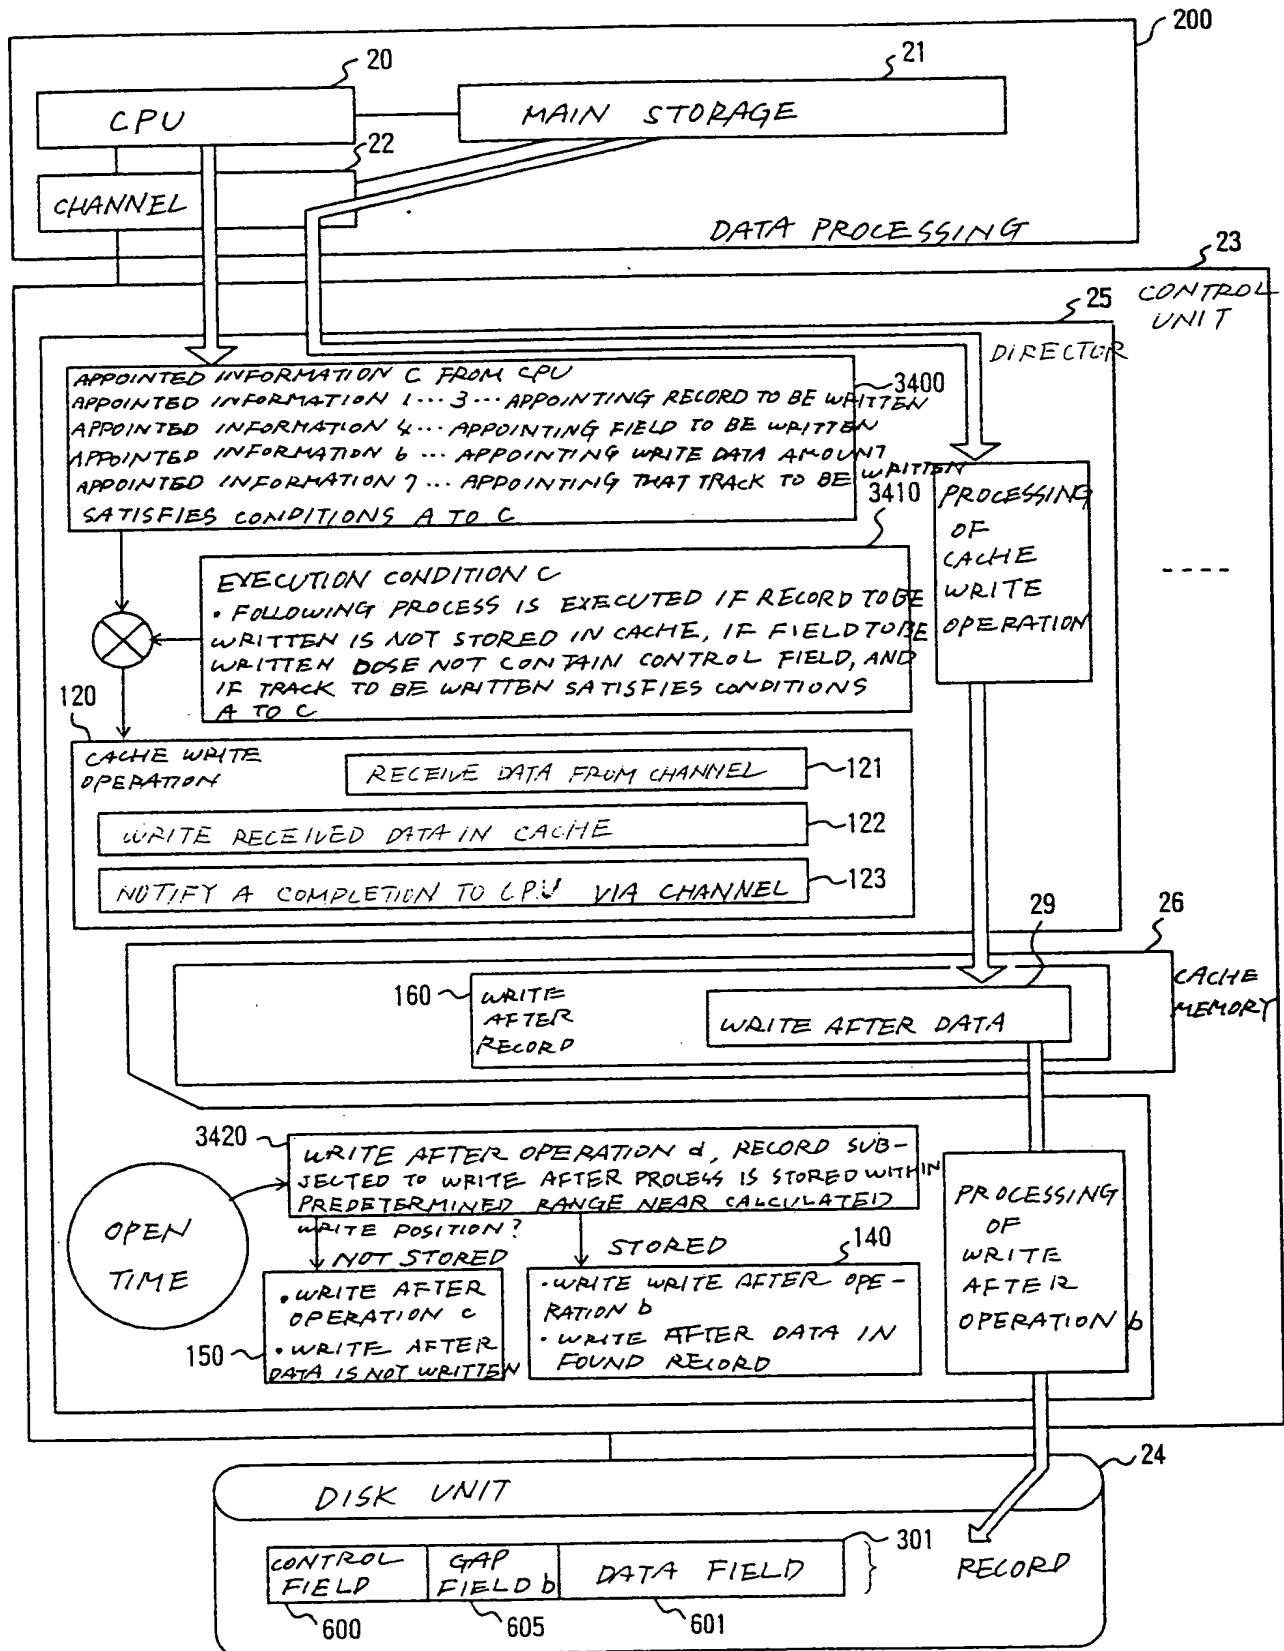 200
20
21
CPU
MAIN STORAGE
22
CHANNEL
DATA PROCESSING
23
CONTROL
UNIT
25
DIRECTOR
APPOINTED INFORMATION C FROM CPU
APPOINTED INFORMATION 1 ... 3 ... APPOINTING RECORD TO BE WRITTEN
APPOINTED INFORMATION 4 ... APPOINTING FIELD TO BE WRITTEN
APPOINTED INFORMATION 6 ... APPOINTING WRITE DATA AMOUNT
APPOINTED INFORMATION 7 ... APPOINTING THAT TRACK TO BE WRITTEN
SATISFIES CONDITIONS A TO C
3400
3410
PROCESSING
OF
CACHE
WRITE
OPERATION
----
EXECUTION CONDITION C
• FOLLOWING PROCESS IS EXECUTED IF RECORD TO BE
WRITTEN IS NOT STORED IN CACHE, IF FIELD TO BE
WRITTEN DOSE NOT CONTAIN CONTROL FIELD, AND
IF TRACK TO BE WRITTEN SATISFIES CONDITIONS
A TO C
120
CACHE WRITE
OPERATION
RECEIVE DATA FROM CHANNEL
121
WRITE RECEIVED DATA IN CACHE
122
NOTIFY A COMPLETION TO CPU VIA CHANNEL
123
26
29
CACHE
MEMORY
160
WRITE
AFTER
RECORD
WRITE AFTER DATA
3420
WRITE AFTER OPERATION d, RECORD SUB-
JECTED TO WRITE AFTER PROCESS IS STORED WITHIN
PREDETERMINED RANGE NEAR CALCULATED
WRITE POSITION?
OPEN
TIME
NOT STORED
STORED
140
150
• WRITE AFTER
OPERATION c
• WRITE AFTER
DATA IS NOT WRITTEN
• WRITE WRITE AFTER OPE-
RATION b
• WRITE AFTER DATA IN
FOUND RECORD
PROCESSING
OF
WRITE
AFTER
OPERATION b
24
DISK UNIT
301
CONTROL
FIELD
GAP
FIELD b
DATA FIELD
RECORD
600
605
601